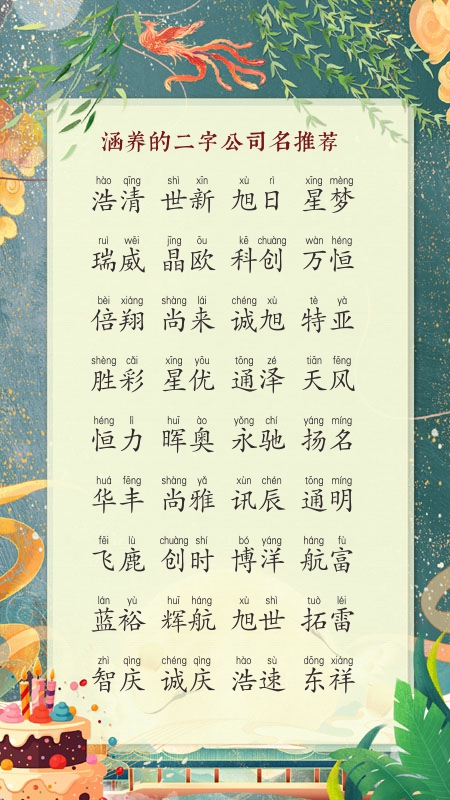 涵养的二字公司名推荐
hào qīng shì xīn xù rì xīng mèng
浩清 世新 旭日 星梦
ruì wēi jīng ōu kē chuàng wàn héng
瑞威 晶欧 科创 万恒
bèi xiáng shàng lái chéng xù tè yà
倍翔 尚来 诚旭 特亚
shèng cǎi xīng yōu tōng zé tiān fēng
胜彩 星优 通泽 天风
héng lì huī ào yǒng chí yáng míng
恒力 晖奥 永驰 扬名
huá fēng shàng yǎ xùn chén tōng míng
华丰 尚雅 讯辰 通明
fēi lù chuàng shí bó yáng háng fù
飞鹿 创时 博洋 航富
lán yù huī háng xù shì tuò léi
蓝裕 辉航 旭世 拓雷
zhì qìng chéng qìng hào sù dōng xiáng
智庆 诚庆 浩速 东祥